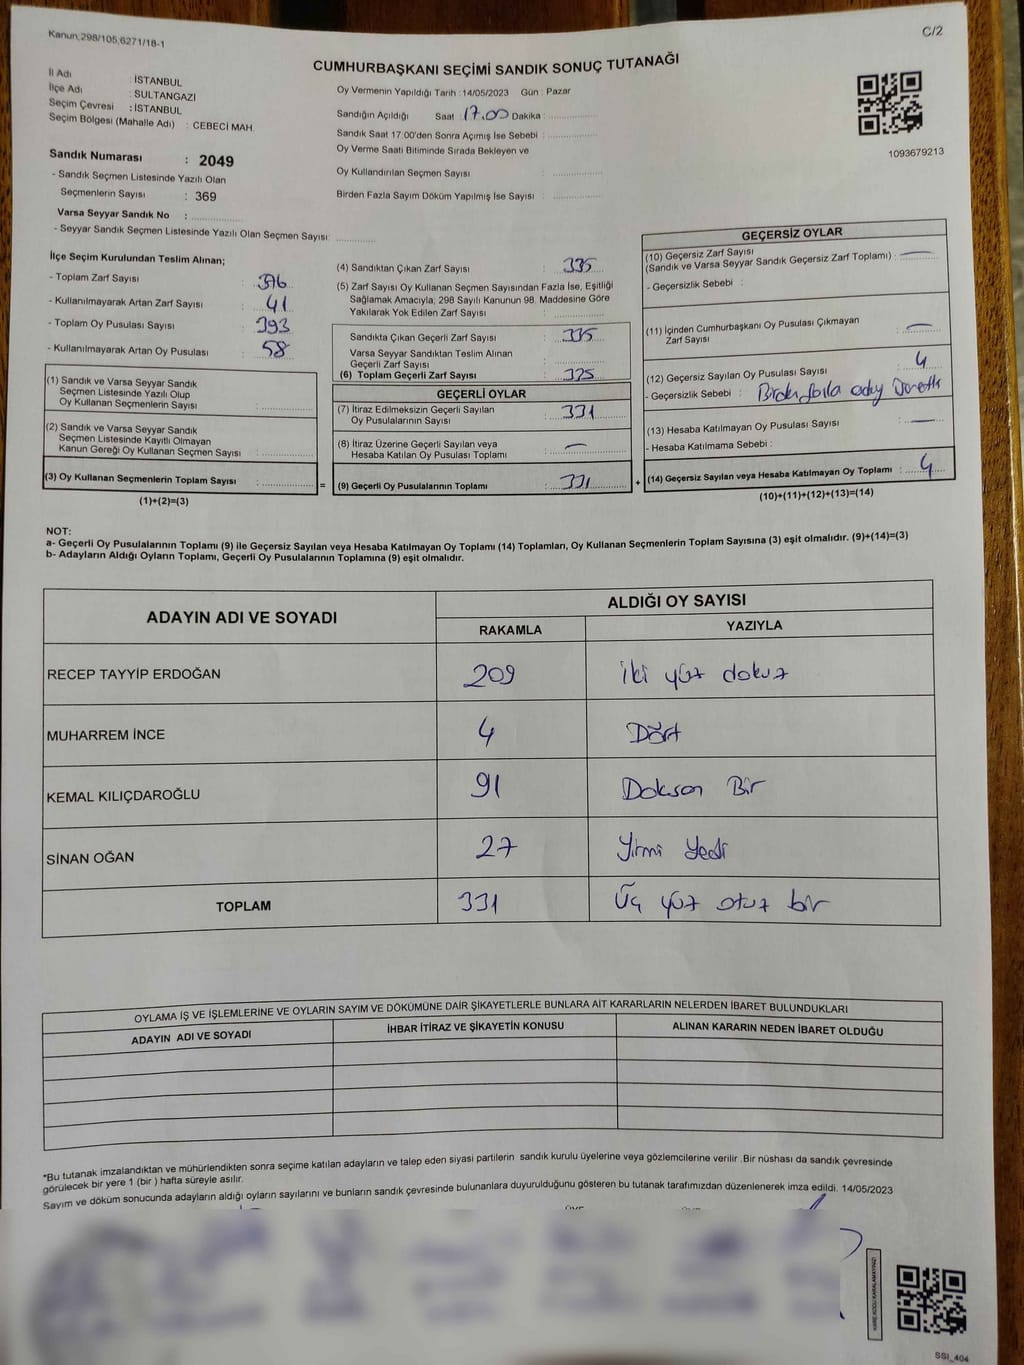 Kanun.298/105,6271/18-1
C/2
CUMHURBAŞKANI SEÇİMİ SANDIK SONUÇ TUTANAĞI
İl Adı : İSTANBUL
İlçe Adı : SULTANGAZİ
Seçim Çevresi : İSTANBUL
Seçim Bölgesi (Mahalle Adı) : CEBECİ MAH.
Sandık Numarası : 2049
- Sandık Seçmen Listesinde Yazılı Olan
Seçmenlerin Sayısı : 369
Varsa Seyyar Sandık No :
- Seyyar Sandık Seçmen Listesinde Yazılı Olan Seçmen Sayısı :
Oy Vermenin Yapıldığı Tarih : 14/05/2023 Gün : Pazar
Sandığın Açıldığı Saat : 17.00 Dakika :
Sandık Saat 17:00'den Sonra Açımış İse Sebebi :
Oy Verme Saati Bitiminde Sırada Bekleyen ve
Oy Kullandırılan Seçmen Sayısı :
Birden Fazla Sayım Döküm Yapılmış İse Sayısı :
1093679213
İlçe Seçim Kurulundan Teslim Alınan;
- Toplam Zarf Sayısı : 376
- Kullanılmayarak Artan Zarf Sayısı : 41
- Toplam Oy Pusulası Sayısı : 393
- Kullanılmayarak Artan Oy Pusulası : 58
(1) Sandık ve Varsa Seyyar Sandık
Seçmen Listesinde Yazılı Olup
Oy Kullanan Seçmenlerin Sayısı :
(2) Sandık ve Varsa Seyyar Sandık
Seçmen Listesinde Kayıtlı Olmayan
Kanun Gereği Oy Kullanan Seçmen Sayısı :
(3) Oy Kullanan Seçmenlerin Toplam Sayısı : =
(1)+(2)=(3)
(4) Sandıktan Çıkan Zarf Sayısı : 335
(5) Zarf Sayısı Oy Kullanan Seçmen Sayısından Fazla İse, Eşitliği
Sağlamak Amacıyla, 298 Sayılı Kanunun 98. Maddesine Göre
Yakılarak Yok Edilen Zarf Sayısı :
Sandıkta Çıkan Geçerli Zarf Sayısı : 335
Varsa Seyyar Sandıktan Teslim Alınan
Geçerli Zarf Sayısı :
(6) Toplam Geçerli Zarf Sayısı : 335
GEÇERLİ OYLAR
(7) İtiraz Edilmeksizin Geçerli Sayılan
Oy Pusulalarının Sayısı : 331
(8) İtiraz Üzerine Geçerli Sayılan veya
Hesaba Katılan Oy Pusulası Toplamı : —
(9) Geçerli Oy Pusulalarının Toplamı : 331 +
GEÇERSİZ OYLAR
(10) Geçersiz Zarf Sayısı
(Sandık ve Varsa Seyyar Sandık Geçersiz Zarf Toplamı) : —
- Geçersizlik Sebebi :
(11) İçinden Cumhurbaşkanı Oy Pusulası Çıkmayan
Zarf Sayısı : —
(12) Geçersiz Sayılan Oy Pusulası Sayısı : 4
- Geçersizlik Sebebi : Birden fazla aday
(13) Hesaba Katılmayan Oy Pusulası Sayısı : —
- Hesaba Katılmama Sebebi :
(14) Geçersiz Sayılan veya Hesaba Katılmayan Oy Toplamı : 4
(10)+(11)+(12)+(13)=(14)
NOT:
a- Geçerli Oy Pusulalarının Toplamı (9) ile Geçersiz Sayılan veya Hesaba Katılmayan Oy Toplamı (14) Toplamları, Oy Kullanan Seçmenlerin Toplam Sayısına (3) eşit olmalıdır. (9)+(14)=(3)
b- Adayların Aldığı Oyların Toplamı, Geçerli Oy Pusulalarının Toplamına (9) eşit olmalıdır.
ADAYIN ADI VE SOYADI
ALDIĞI OY SAYISI
RAKAMLA YAZIYLA
RECEP TAYYİP ERDOĞAN 209 iki yüz dokuz
MUHARREM İNCE 4 Dört
KEMAL KILIÇDAROĞLU 91 Doksan Bir
SİNAN OĞAN 27 Yirmi Yedi
TOPLAM 331 Üç yüz otuz bir
OYLAMA İŞ VE İŞLEMLERİNE VE OYLARIN SAYIM VE DÖKÜMÜNE DAİR ŞİKAYETLERLE BUNLARA AİT KARARLARIN NELERDEN İBARET BULUNDUKLARI
ADAYIN ADI VE SOYADI İHBAR İTİRAZ VE ŞİKAYETİN KONUSU ALINAN KARARIN NEDEN İBARET OLDUĞU
*Bu tutanak imzalandıktan ve mühürlendikten sonra seçime katılan adayların ve talep eden siyasi partilerin sandık kurulu üyelerine veya gözlemcilerine verilir. Bir nüshası da sandık çevresinde
görülecek bir yere 1 (bir ) hafta süreyle asılır.
Sayım ve döküm sonucunda adayların aldığı oyların sayılarını ve bunların sandık çevresinde bulunanlara duyurulduğunu gösteren bu tutanak tarafımızdan düzenlenerek imza edildi. 14/05/2023
KARE KODU KARALAMAYINIZ!
SSI_404